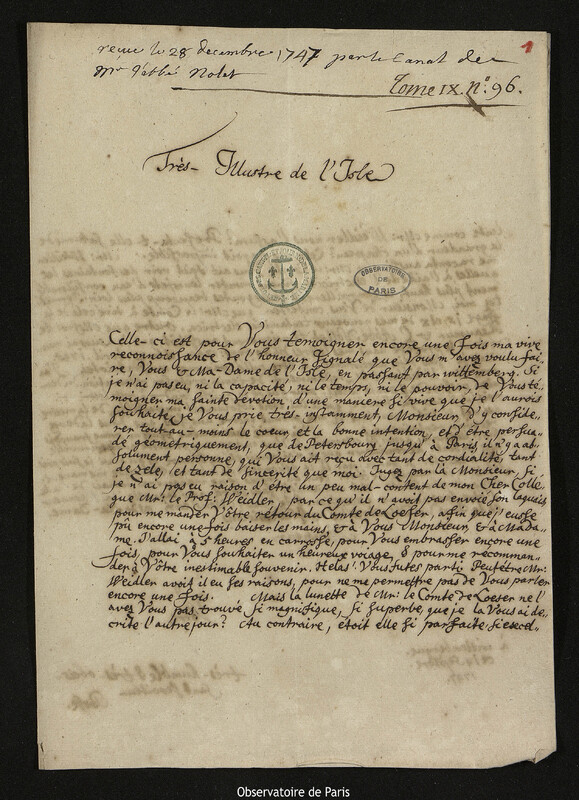 reçue le 28 decembre 1747 par le Canal de
Mr l'abbé Nolet
1
Tome IX. n.° 96.
Très- Illustre de l'Isle
OBSERVATOIRE
DE
PARIS
Celle-ci est pour Vous temoigner encore une fois ma vive
reconnoissance de l'honneur signalé que Vous m'avez voulu fai-
re, Vous & Ma-Dame de l'Isle, en passant par wittemberg. Si
je n'ai pas eu, ni la capacité, ni le temps, ni le pouvoir, de Vous te-
moigner ma sainte devotion, d'une maniere si vive que je l'aurois
souhaité, je Vous prie très-instamment, Monsieur, d'y conside-
rer tout-au-moins le coeur et la bonne intention, et d'être persua-
dé géometriquement, que de Petersbourg jusqu'à Paris il n'y a ab-
solument personne, qui Vous ait reçu avec tant de cordialité, tant
de zele, et tant de sincerité que moi. Jugez par la Monsieur, si
je n'ai pas eu raison d'être un peu mal-content de mon Cher Colle-
gue Mr: le Prof: Weidler, parce qu'il n'avoit pas envoié son laquais
pour me mander Vôtre retour du Comte de Loeser, afin que j'eusse
pû encore une fois baiser les mains, & à Vous Monsieur, & à Mada-
me. J'allai à 5 heures en carrosse, pour Vous embrasser encore une
fois, pour Vous souhaiter un heureux voiage, & pour me recomman-
der à Vôtre inestimable souvenir. Helas! Vous futes parti. Peutêtre Mr:
Weidler avoit il eu ses raisons, pour ne me permettre pas de Vous parler
encore une fois. Mais la lunette de Mr: le Comte de Loeser ne l'
avez Vous pas trouvé si magnifique, si superbe, que je la Vous ai de-
crite l'autre jour? Au contraire, étoit elle si parfaite, si excel-
Observatoire de Paris